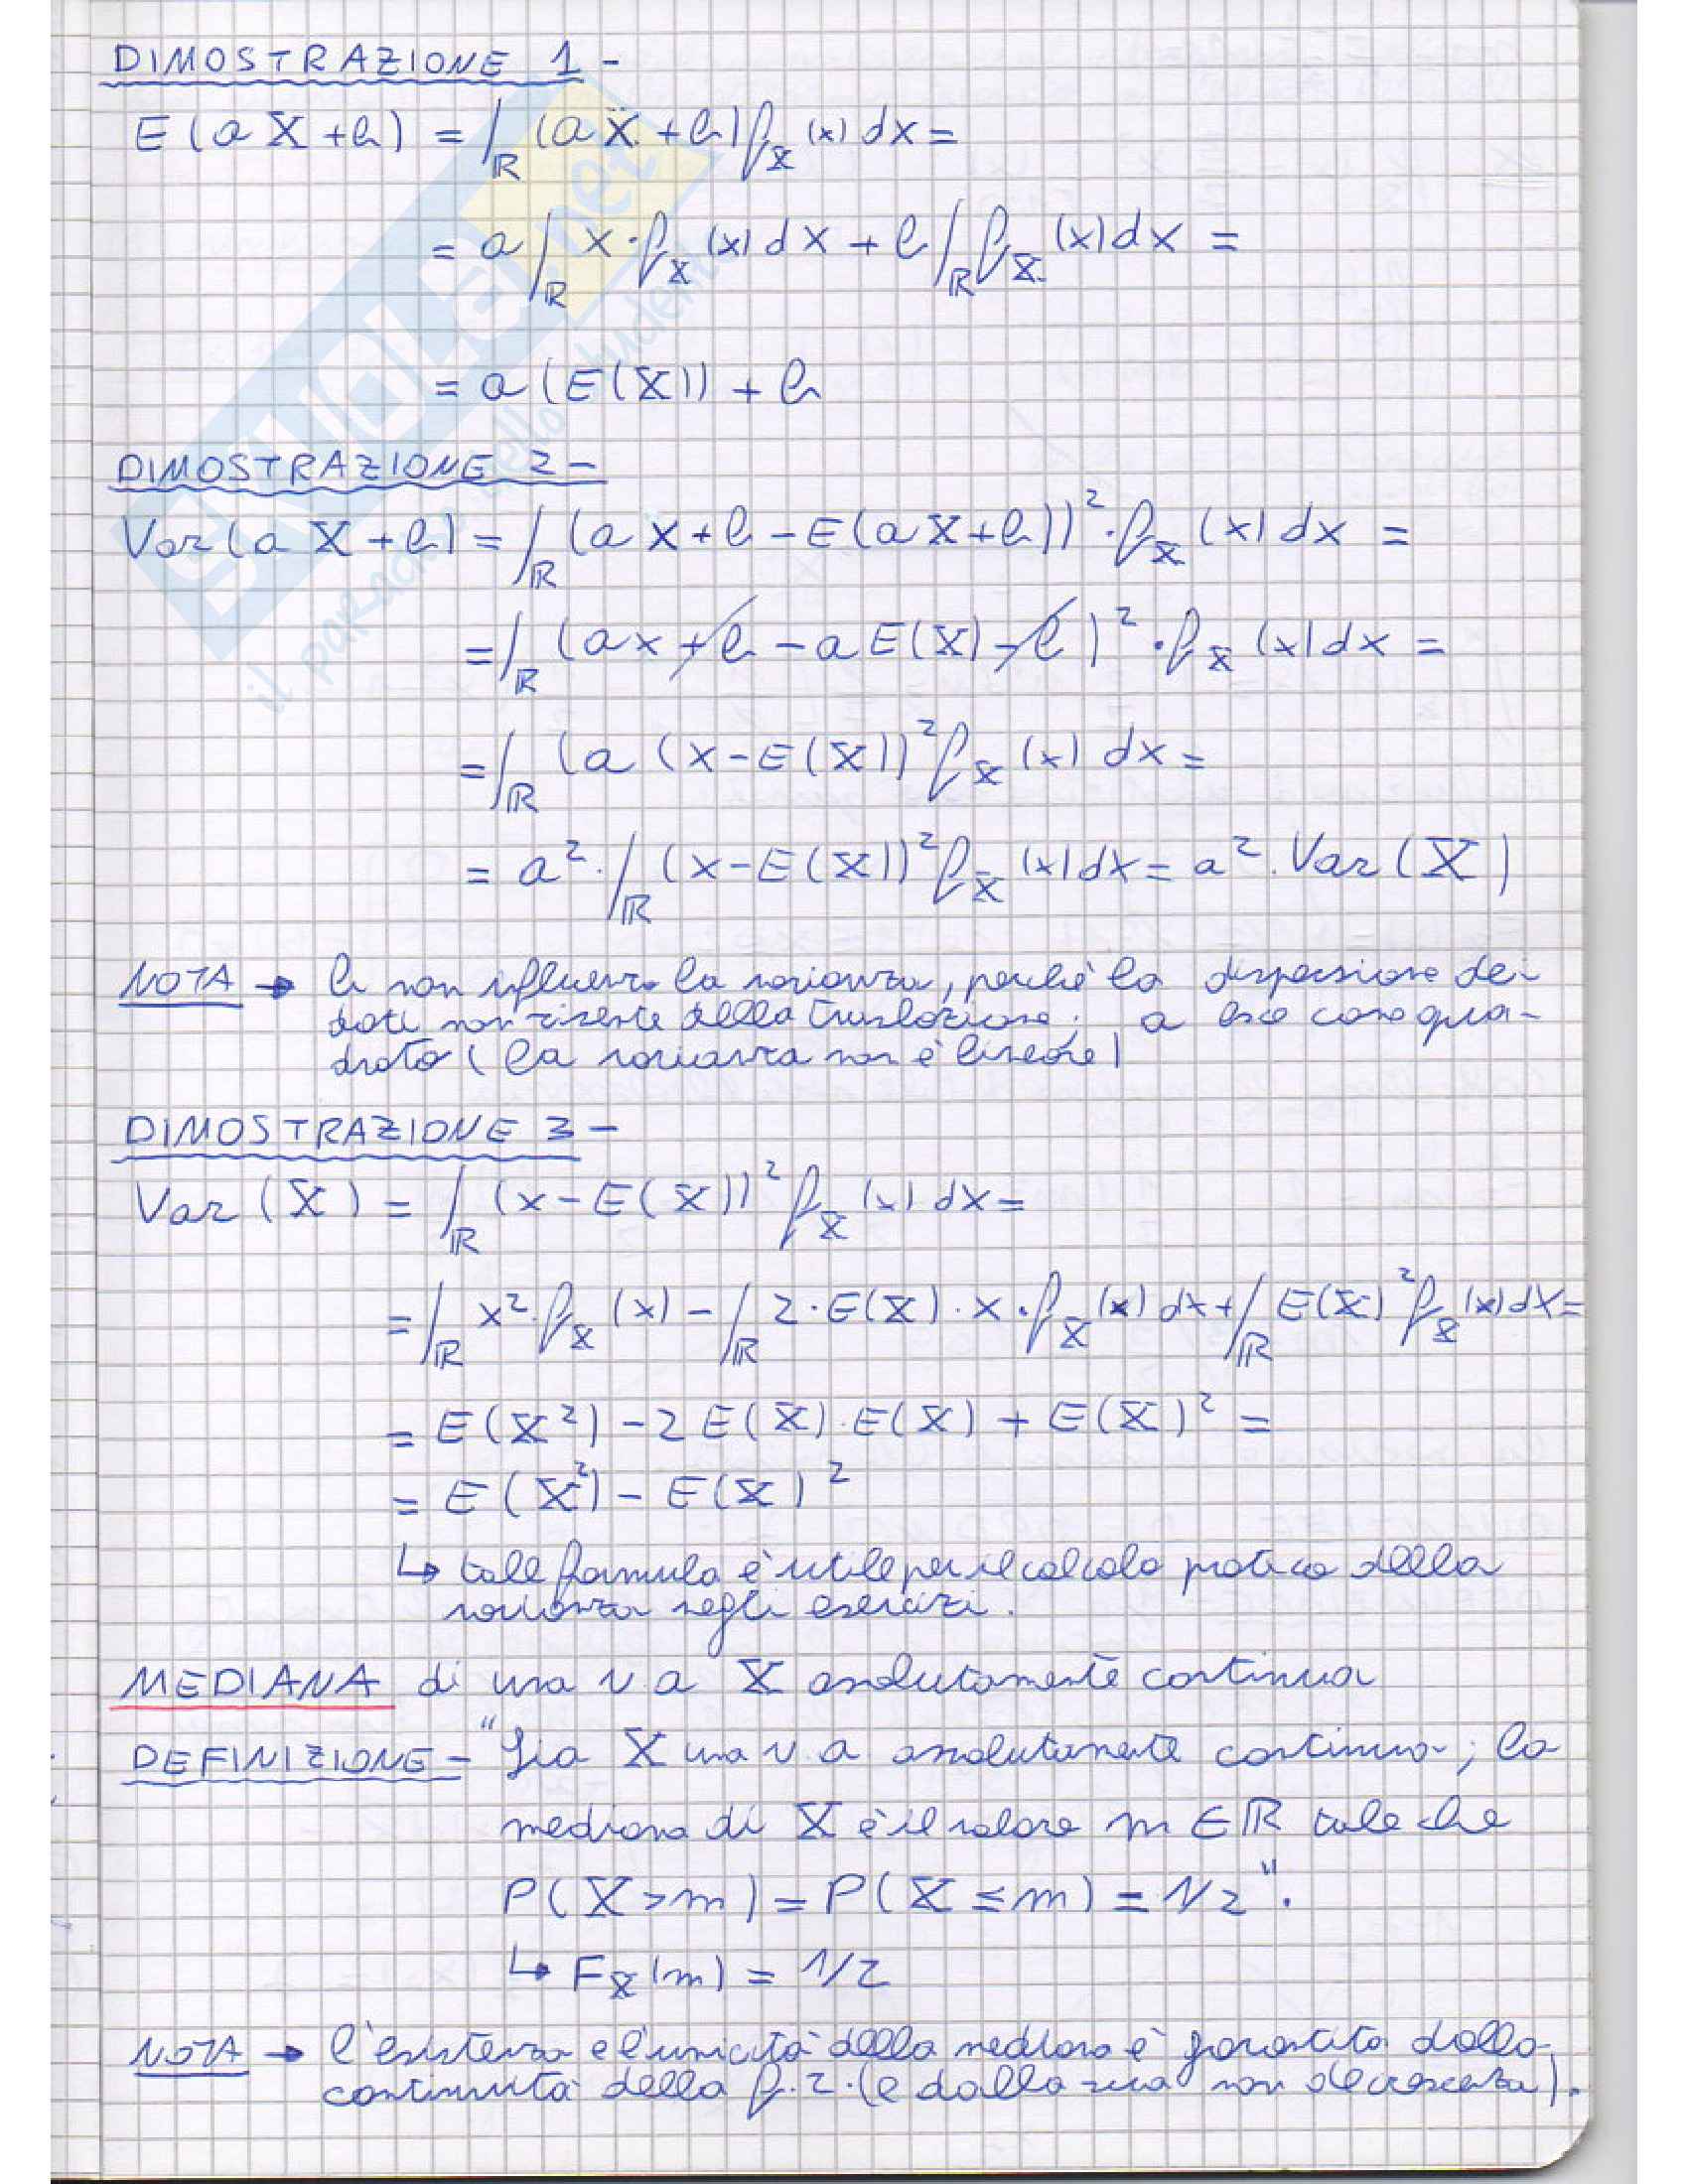 DIMOSTRAZIONE 1 -
E(aX+b) = ∫_ℝ (aX+b) f_X(x) dx =
= a ∫_ℝ x · f_X(x) dx + b ∫_ℝ f_X(x) dx =
= a(E(X)) + b
DIMOSTRAZIONE 2 -
Var(aX+b) = ∫_ℝ (ax+b-E(aX+b))² · f_X(x) dx =
= ∫_ℝ (ax+b-aE(X)-b)² · f_X(x) dx =
= ∫_ℝ (a(x-E(X))² f_X(x) dx =
= a² · ∫_ℝ (x-E(X))² f_X(x) dx = a² · Var(X)
NOTA → b non influenza la varianza, perché la dispersione dei
dati non risente della traslazione; a esce come qua-
drato (la varianza non è lineare)
DIMOSTRAZIONE 3 -
Var(X) = ∫_ℝ (x-E(X))² f_X(x) dx =
= ∫_ℝ x² · f_X(x) - ∫_ℝ 2 · E(X) · x · f_X(x) dx + ∫_ℝ E(X)² f_X(x) dx =
= E(X²) - 2E(X) · E(X) + E(X)² =
= E(X²) - E(X)²
↳ tale formula è utile per il calcolo pratico della
varianza negli esercizi.
MEDIANA di una v a X assolutamente continua
DEFINIZIONE - "Sia X una v.a assolutamente continua; la
mediana di X è il valore m ∈ ℝ tale che
P(X>m) = P(X≤m) = 1/2".
↳ F_X(m) = 1/2
NOTA → l'esistenza e l'unicità della mediana è garantita dalla
continuità della f.r. (e dalla sua non decrescenza).
SKUOLA.net
il paradiso dello studente